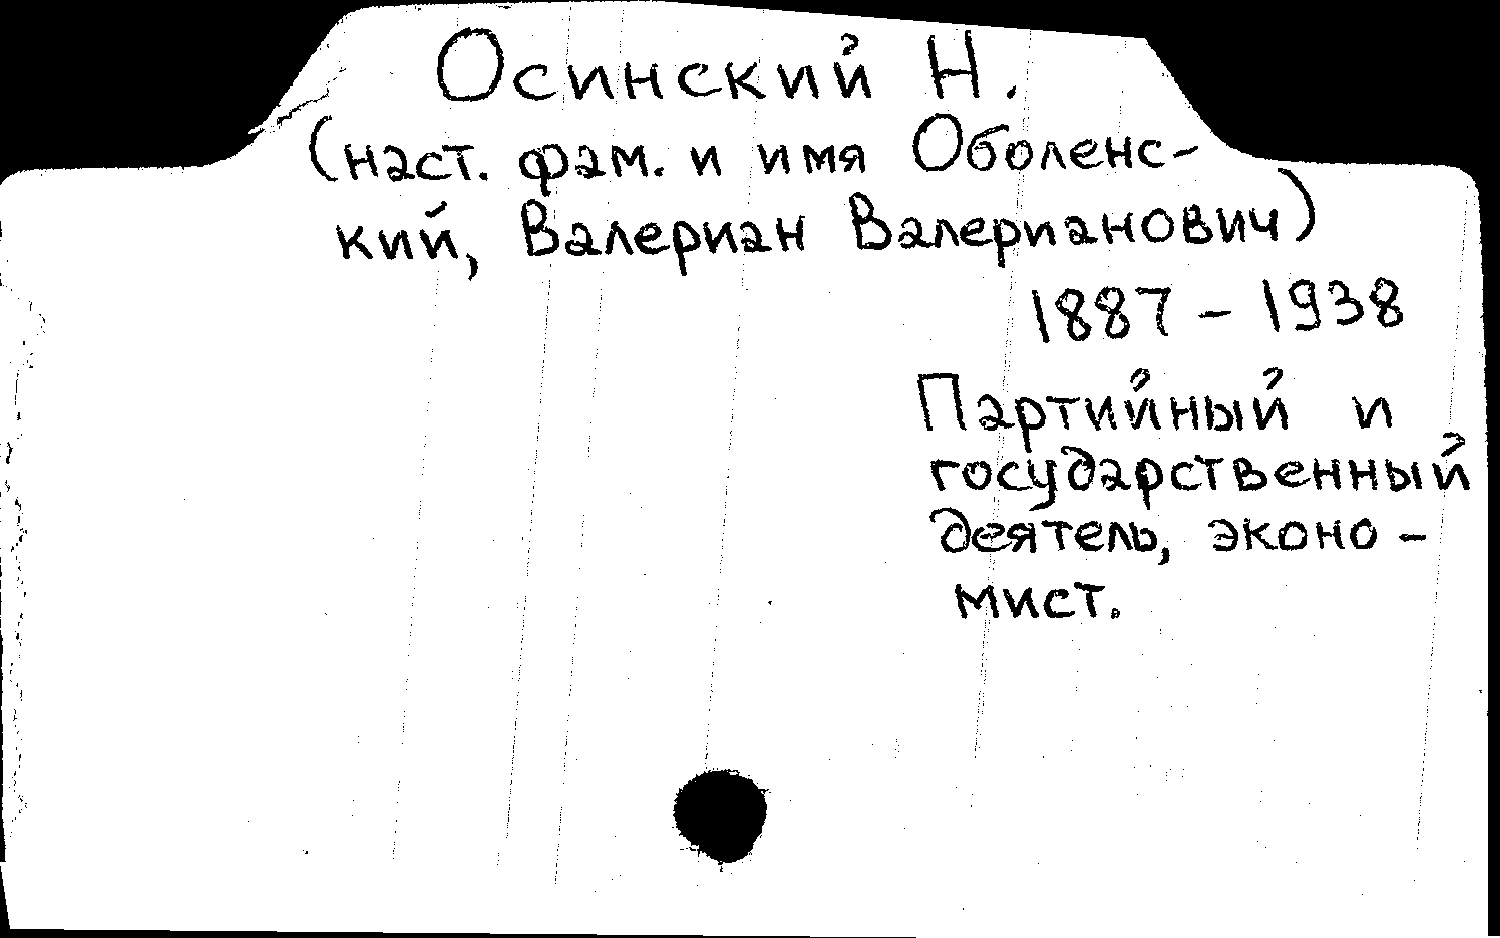 Осинский Н.
(наст. фам. и имя Оболенс-
кий, Валериан Валерианович)
1887 - 1938
Партийный и
государственный
деятель, эконо-
мист.